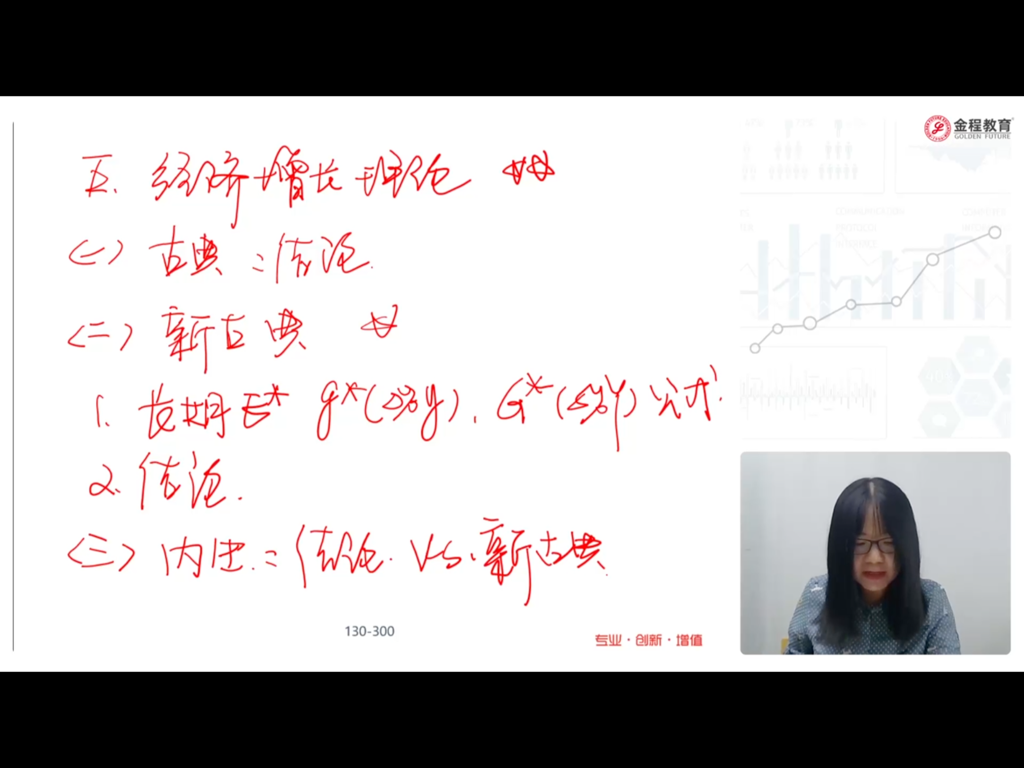 金程教育
GOLDEN FUTURE
五. 经济增长理论 ☆☆
(一) 古典:结论.
(二) 新古典 ☆
1. 长期E* g*(Δ%y). G*(Δ%Y) 公式.
2. 结论.
(三) 内生:结论. VS. 新古典.
130-300
专业·创新·增值